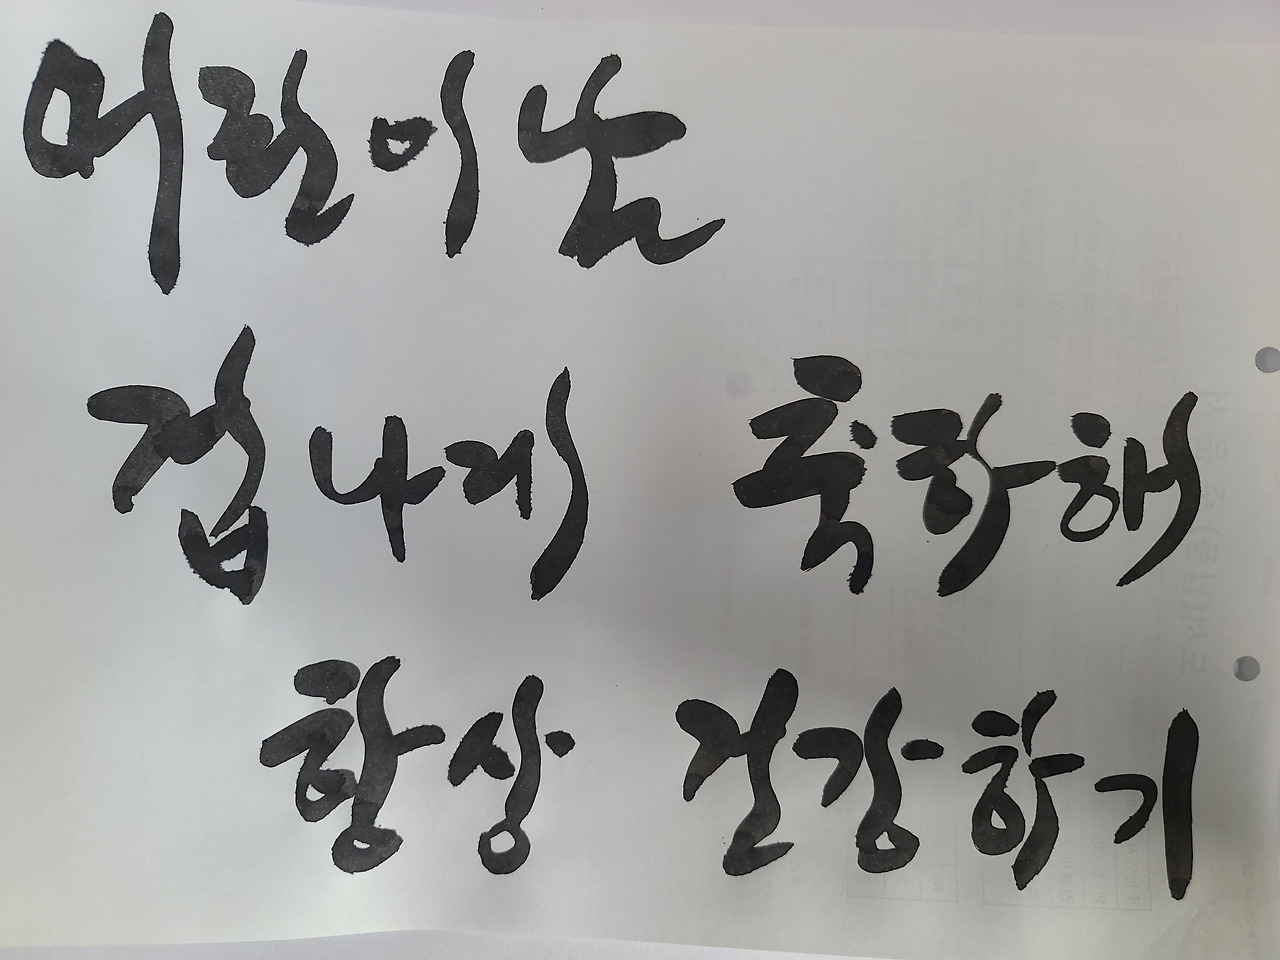 어린이날
겁나게 축하해
항상 건강하기